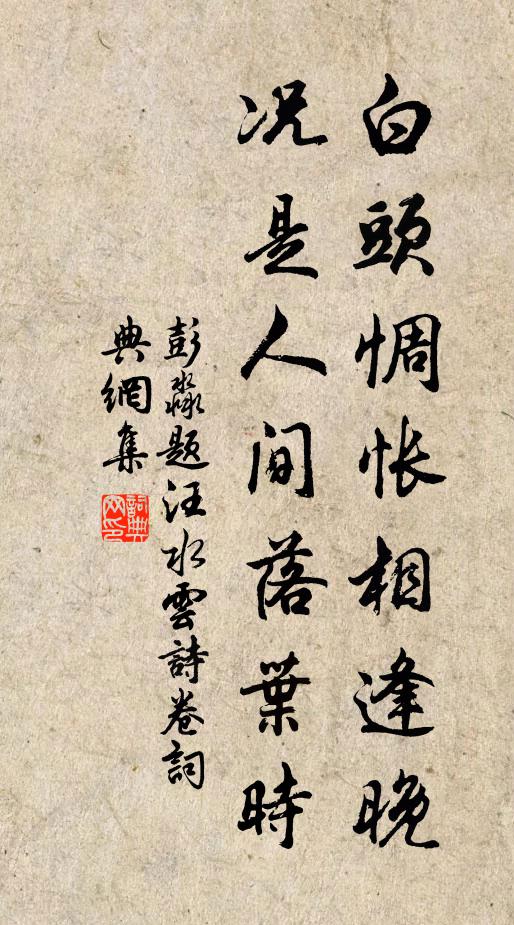 白頭惆怅相逢晚
况是人间落葉時
彭淼題汪水雲詩卷詞
典網集
詞典网印